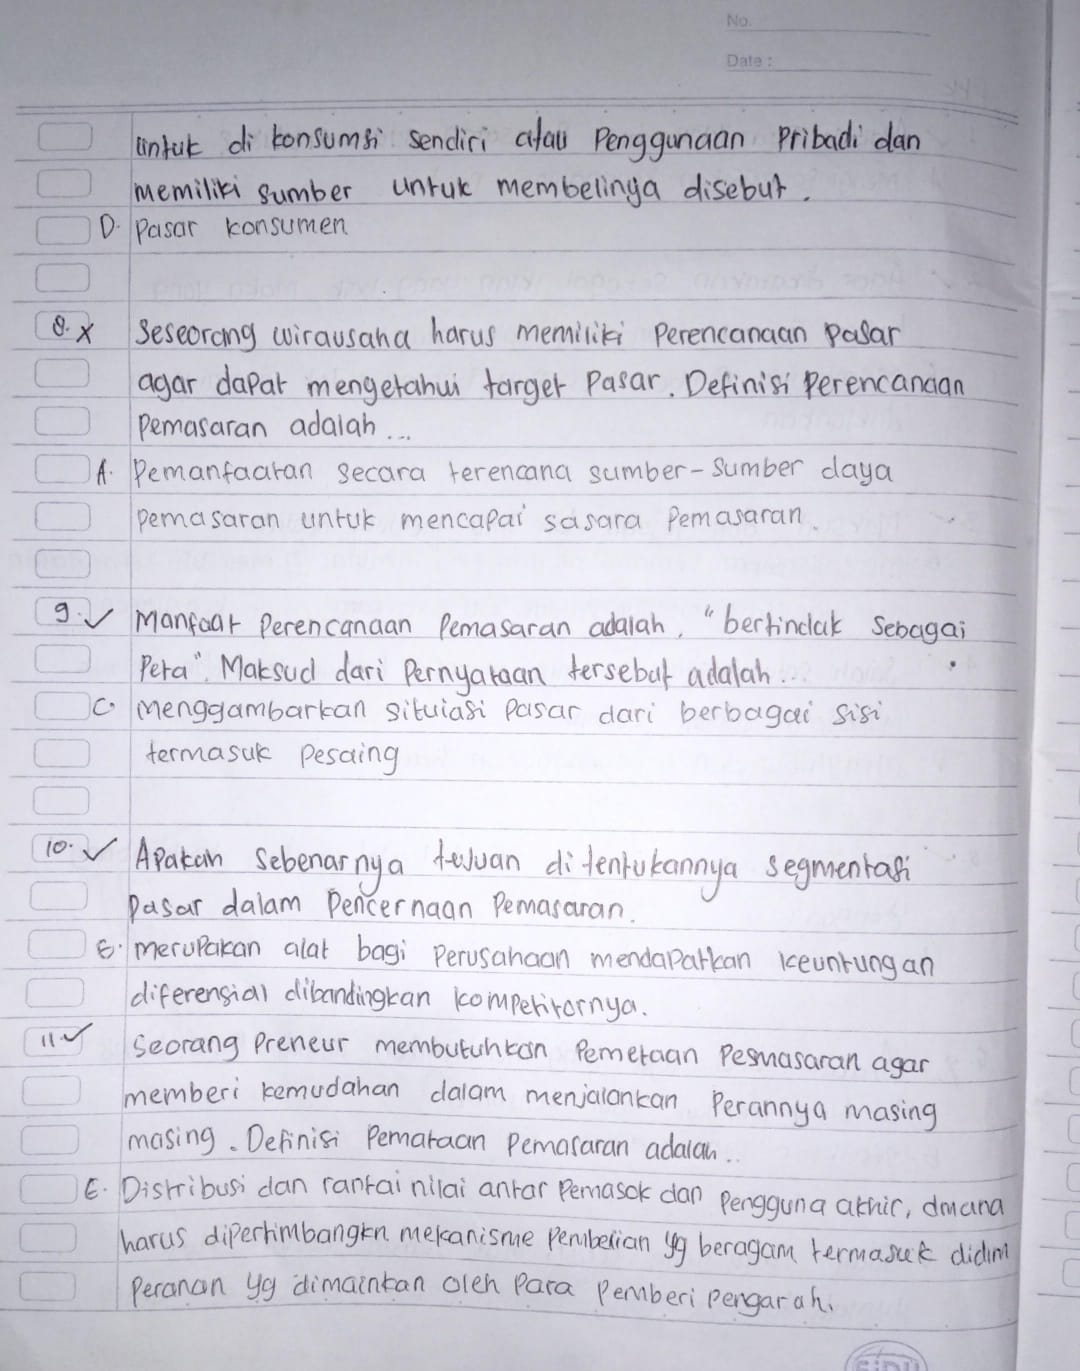 No.
Date :
untuk di konsumsi sendiri atau Penggunaan Pribadi dan
memiliki sumber untuk membelinya disebut.
D. Pasar konsumen
8. x Seseorang wirausaha harus memiliki Perencanaan Pasar
agar dapat mengetahui target Pasar. Definisi Perencanaan
Pemasaran adalah...
A. Pemanfaatan secara terencana sumber-sumber daya
pemasaran untuk mencapai sasara Pemasaran.
9. ✓ Manfaat Perencanaan Pemasaran adalah, "bertindak Sebagai
Peta". Maksud dari Pernyataan tersebut adalah...
C. Menggambarkan situiasi Pasar dari berbagai sisi
termasuk Pesaing
10. ✓ Apakah Sebenarnya tujuan ditentukannya segmentasi
Pasar dalam Pencernaan Pemasaran.
E. merupakan alat bagi Perusahaan mendapatkan keuntungan
diferensial dibandingkan kompetitornya.
11. ✓ Seorang Preneur membutuhkan Pemetaan Pesmasaran agar
memberi kemudahan dalam menjalankan Perannya masing
masing. Definisi Pemataan Pemasaran adalah..
E. Distribusi dan rantai nilai antar Pemasok dan Pengguna akhir, dmana
harus dipertimbangkn mekanisme Pembelian yg beragam termasuk didlm
Peranan yg dimainkan oleh Para Pemberi Pengarah.
SIDU